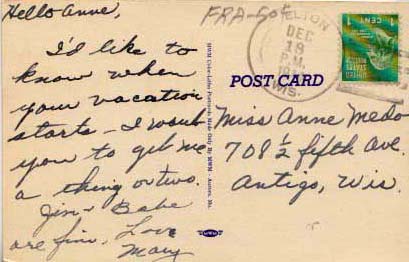 Hello Anne,
I'd like to
know when
your vacation
starts - I want
you to get me
a thing or two.
Jim & Babe
are fine. Love
Mary
FRA-50¢
ELTON
DEC
18
P.M.
WIS.
1 CENT 1
POST CARD
Miss Anne Medo
708 1/2 fifth Ave.
Antigo, Wis.
MWM